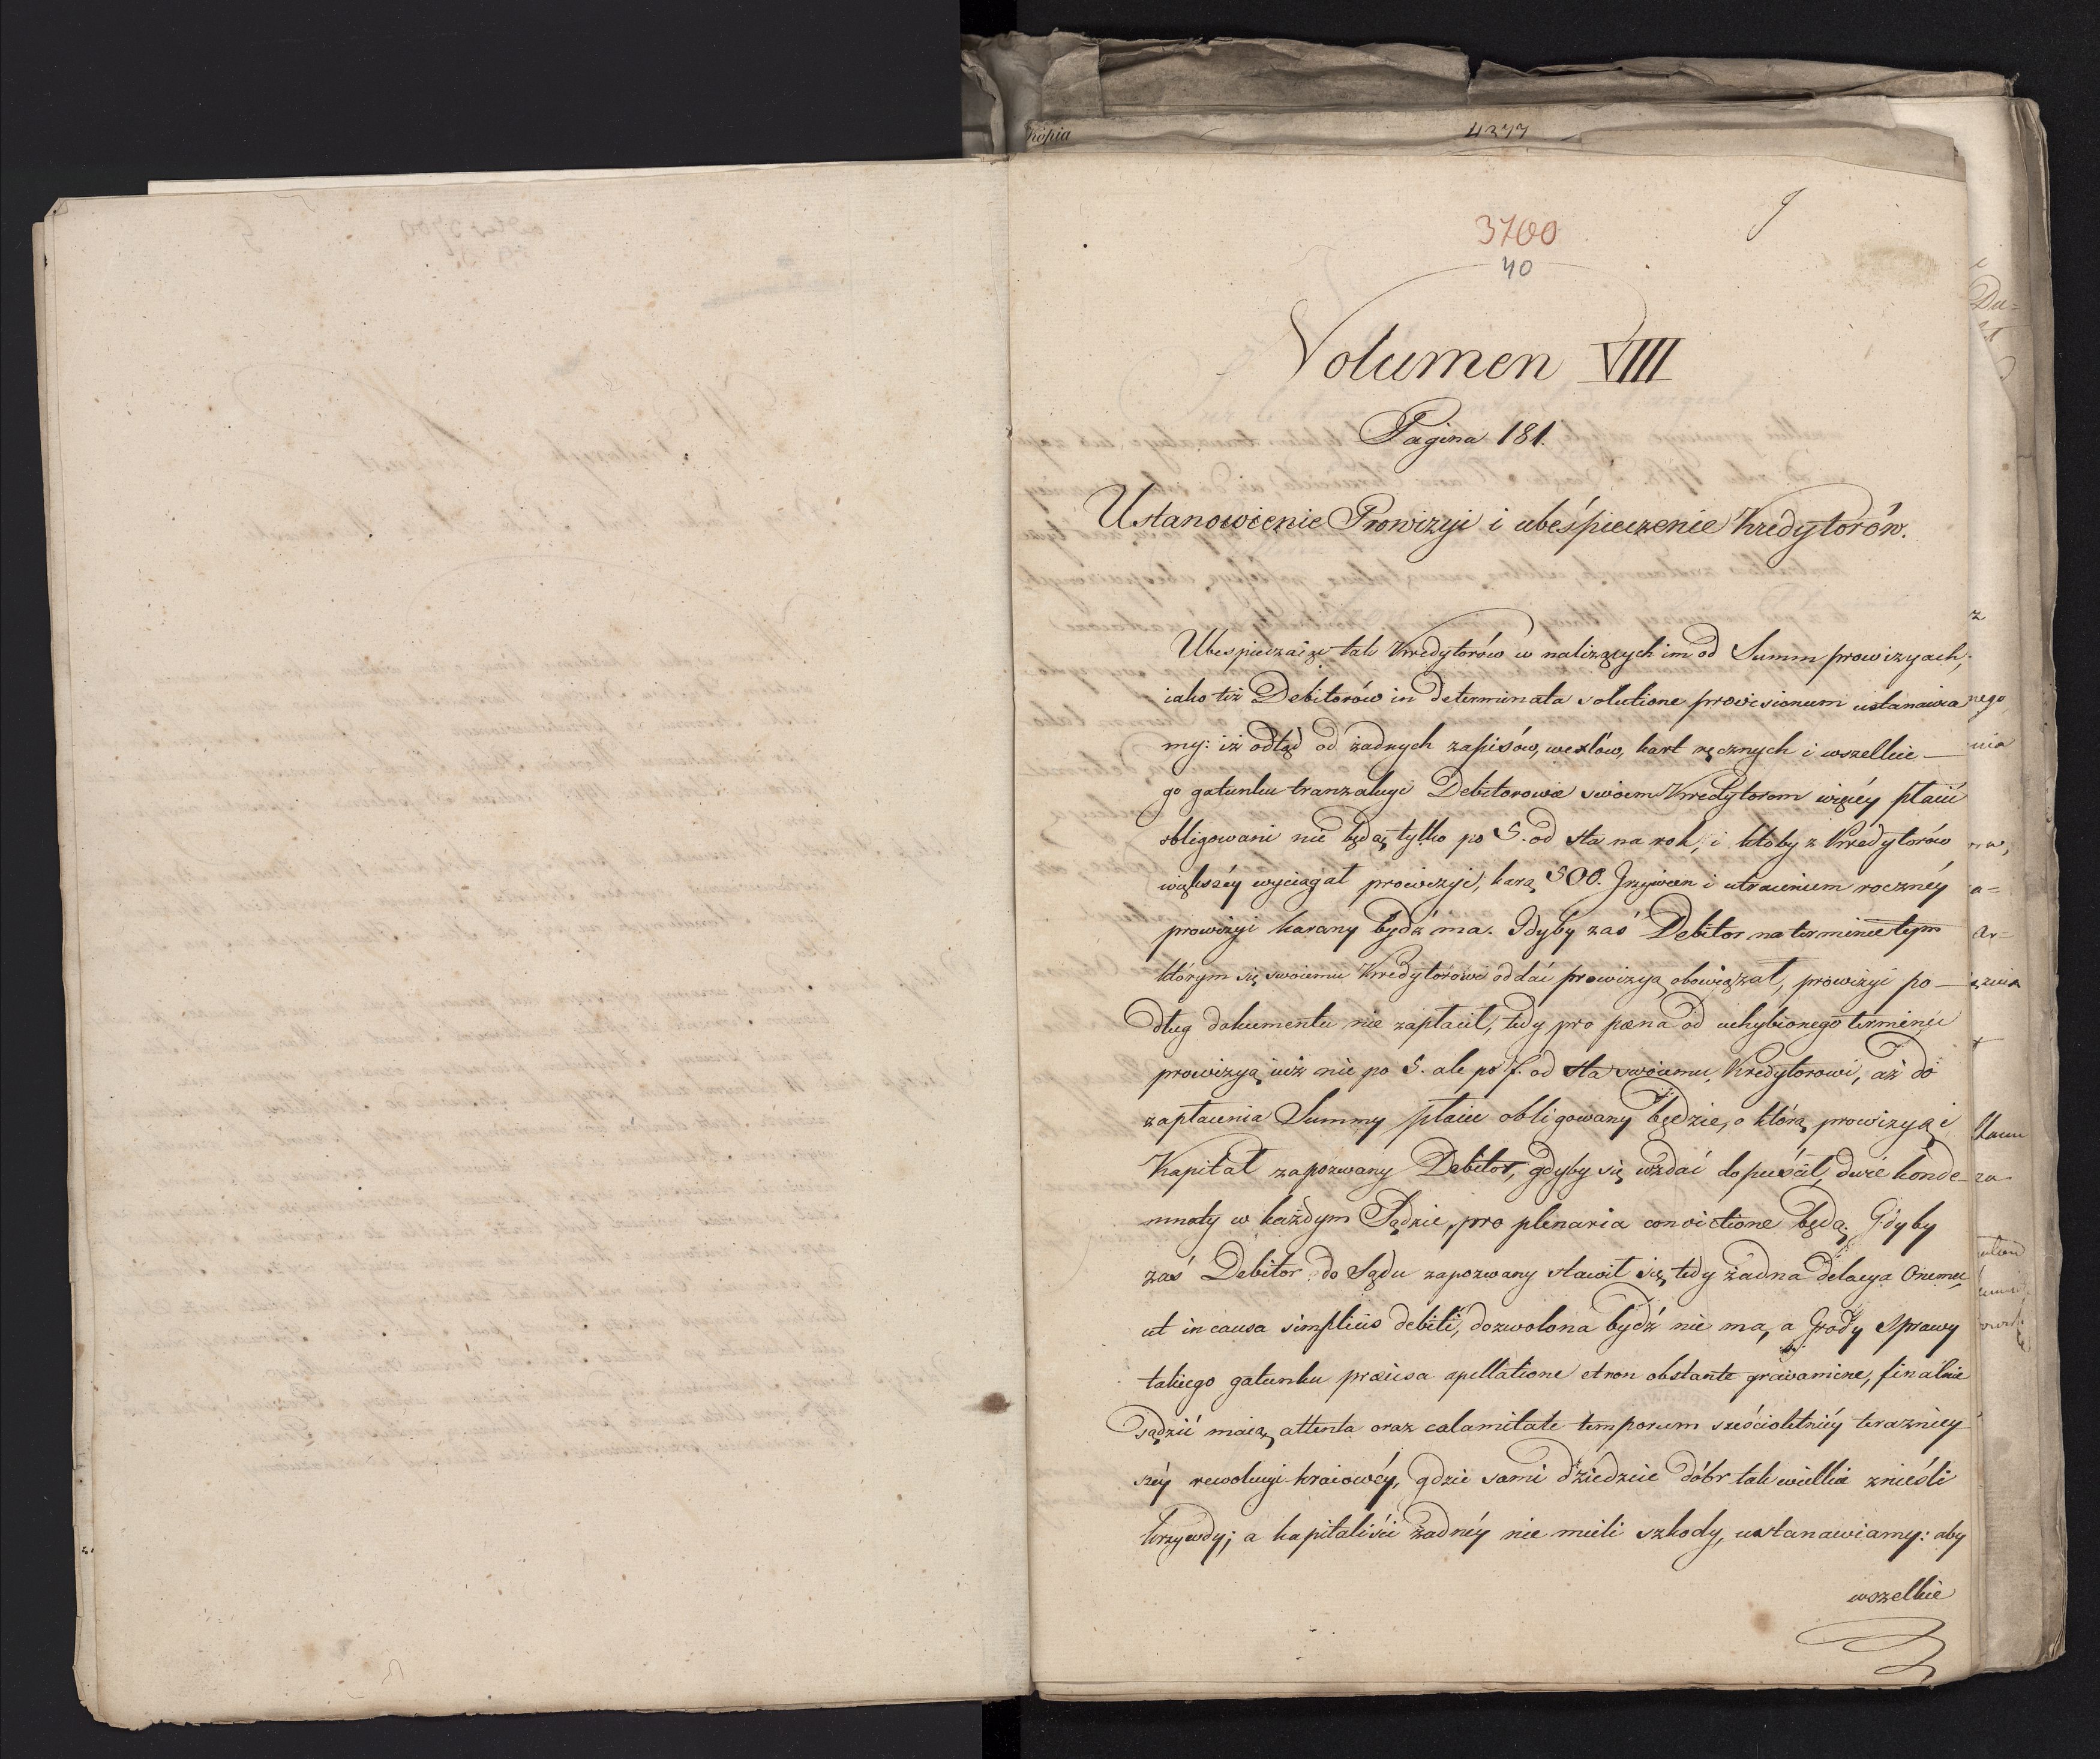 Kopia
4277
3700
40
Volumen VIIII
Pagina 181.
Ustanowienie Prowizyi i ubeśpieczenie Kredytorów.
Ubespieczaiąc tak Kredytorów w należących im od Summ prowizyach,
iako też Debitorów in determinata solutione provisionum ustanawia
my: iż odtąd od żadnych zapisów, wexlów, kart ręcznych i wszelkie—
go gatunku tranzakcyi Debitorowie swoim Kredytorom więcéy płacić
obligowani nie będą, tylko po 5. od sta na rok, i któby z Kredytorów
większéy wyciągał prowizyi, karą 500. Grzywien i utraceniem rocznéy
prowizyi karany bydź ma. Gdyby zaś Debitor na terminie tym
którym się swoiemu Kredytorowi oddać prowizyą obowiązał, prowizyi po—
dług dokumentu nie zapłacił, tedy pro pœna od uchybionego terminu
prowizyą iuż nie po 5. ale po 7. od sta swoiemu Kredytorowi, aż do
zapłacenia Summy płacić obligowany będzie, o którą prowizyą i
Kapitał zapozwany Debitor, gdyby się wzdać dopuścił, dwie konde—
mnaty w każdym Sądzie, pro plenaria convictione będą. Gdyby
zaś Debitor do Sądu zapozwany stawił się, tedy żadna delacya Onemu
ut in causa simplicis debiti, dozwolona bydź nie ma, a Grody Sprawy
takiego gatunku præcisa apellatione et non obstante gravamine, finalnie
sądzić maią, attenta oraz calamitate temporum sześcioletniéy teraźniey
széy rewolucyi kraiowéy, gdzie sami dziedzice dóbr tak wielkie znieśli
krzywdy; a kapitaliści żadnéy nie mieli szkody, ustanawiamy: aby
wszelkie